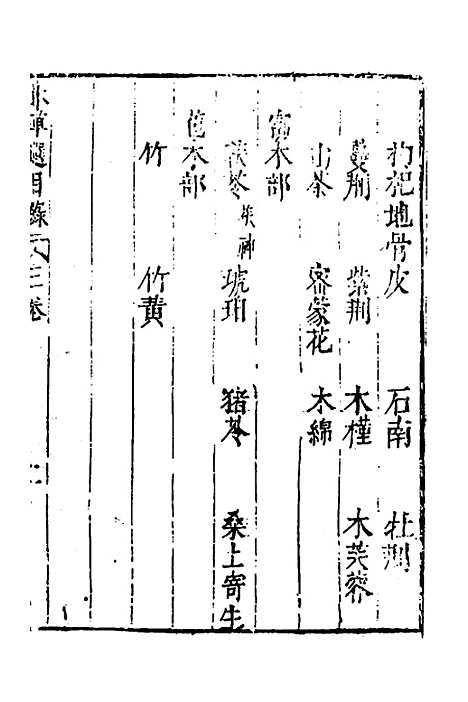 枸杞地骨皮 石南 牡荆
蔓荆 紫荆 木槿 木芙蓉
山茶 密蒙花 木綿
寓木部
茯苓 茯神 琥珀 猪苓 桑上寄生
苞木部
竹 竹黄
本草選目錄 三卷